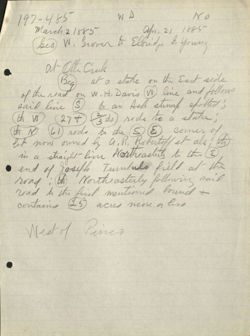 197-485 WD No
March 2 1885 Apr. 21 1885
Geo W. Grover to Eldridge & Young
At Otter Creek
Beg at a stake on the East side
of the road on W.H. Davis line and follow
said line S to an Ash stump spotted;
th W 27+ rods to a stake;
th N 61 rods to the S E corner of
lot now owned by A.R. et als; th
in a straight line Northeasterly to the S
end of Joseph field at the
road; th Northeasterly following said
road to the first mentioned bound &
contains 25 acres more or less
West of